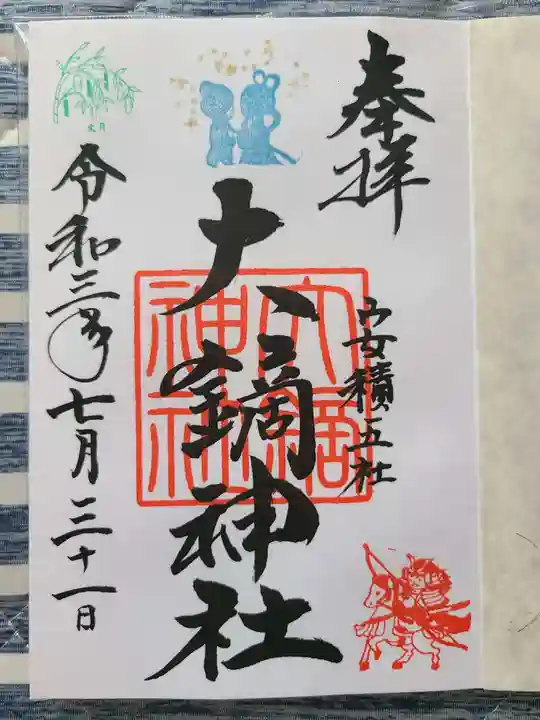 奉拝
安積五社
大鏑神社
大鏑神社
令和三年七月三十一日
文月